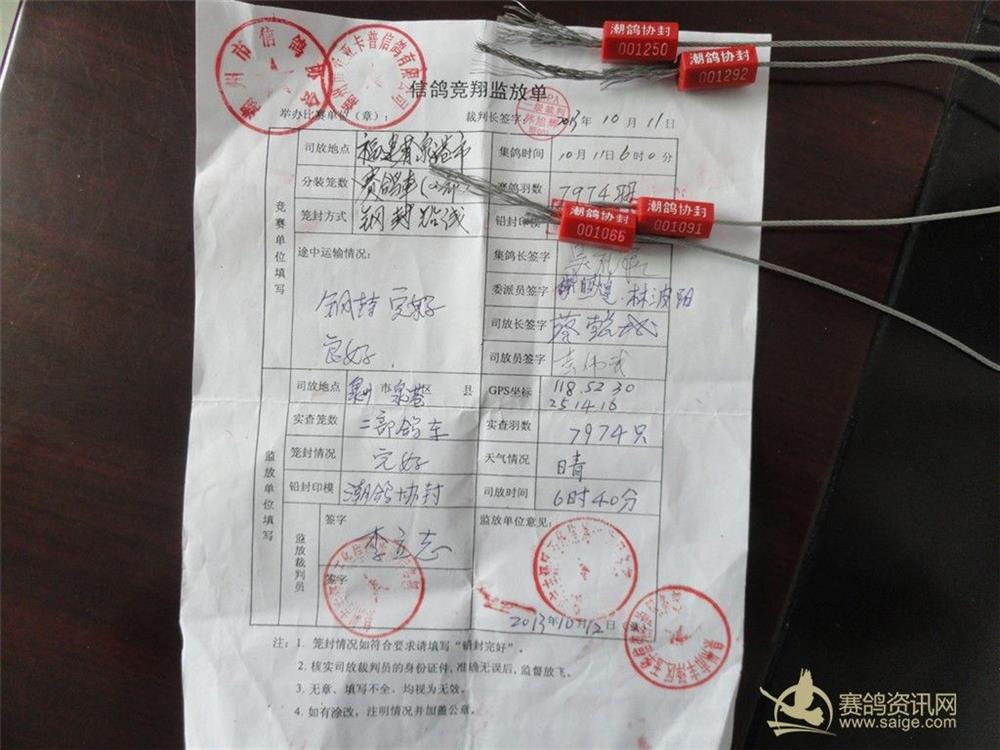 潮鸽协封
001250
潮鸽协封
001292
州市信鸽协会
亚卡普信鸽有限公司
信鸽竞翔监放单
举办比赛单位（章）：
裁判长签字：
2013年10月11日
竞赛单位填写
司放地点
福建省泉港市
集鸽时间
10月11日6时0分
分装笼数
赛鸽车
赛鸽羽数
7974羽
笼封方式
钢封铅线
铅封印模
潮鸽协封
001066
潮鸽协封
001091
途中运输情况：
钢封完好
良好
集鸽长签字
委派员签字
林波阳
司放长签字
蔡
司放员签字
监放单位填写
司放地点
泉州市泉港区县
GPS坐标
118.52.30
25.14.16
实查笼数
二部鸽车
实查羽数
7974只
笼封情况
完好
天气情况
晴
铅封印模
潮鸽协封
司放时间
6时40分
监放裁判员
签字
李立志
签字
监放单位意见：
2013年10月12日（章）
注：1. 笼封情况如符合要求请填写“铅封完好”。
2. 核实司放裁判员的身份证件，准确无误后，监督放飞。
3. 无章、填写不全、均视为无效。
4. 如有涂改，注明情况并加盖公章。
赛鸽资讯网
www.saige.com